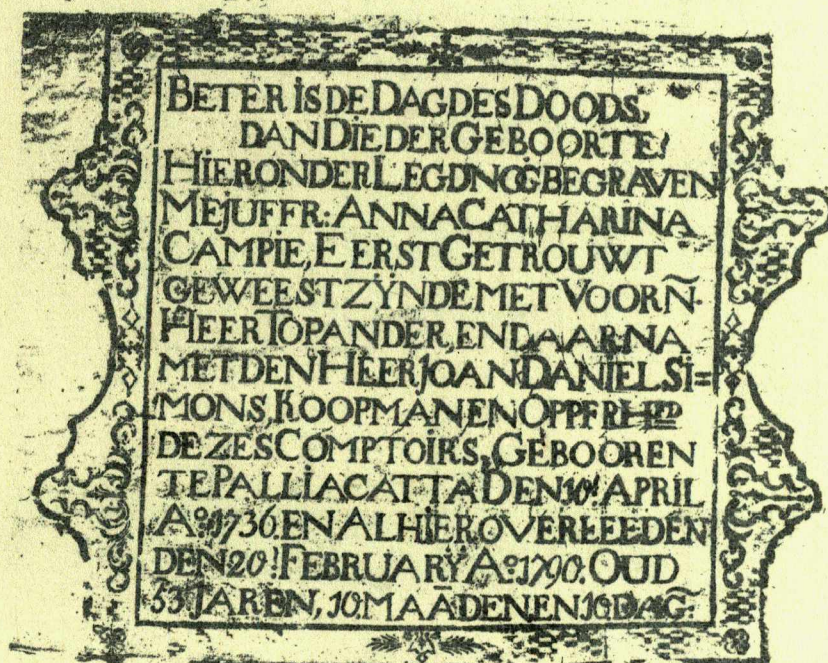 BETER IS DE DAG DES DOODS,
DAN DIE DER GEBOORTE!
HIERONDER LEGD NOG BEGRAVEN
MEJUFFR: ANNA CATHARINA
CAMPIE, EERST GETROUWT
GEWEEST ZŸNDE MET VOORÑ.
HEER TOPANDER, EN DAARNA
MET DEN HEER JOAN DANIEL SI=
MONS, KOOPMAN EN OPPERHFD
DEZES COMPTOIRS, GEBOOREN
TE PALLIACATTA DEN 10! APRIL
Aº: 1736. EN ALHIER OVERLEEDEN
DEN 20! FEBRUARŸ Aº: 1790. OUD
53 JAREN, 10. MAĀDEN EN 10 DAG̃.